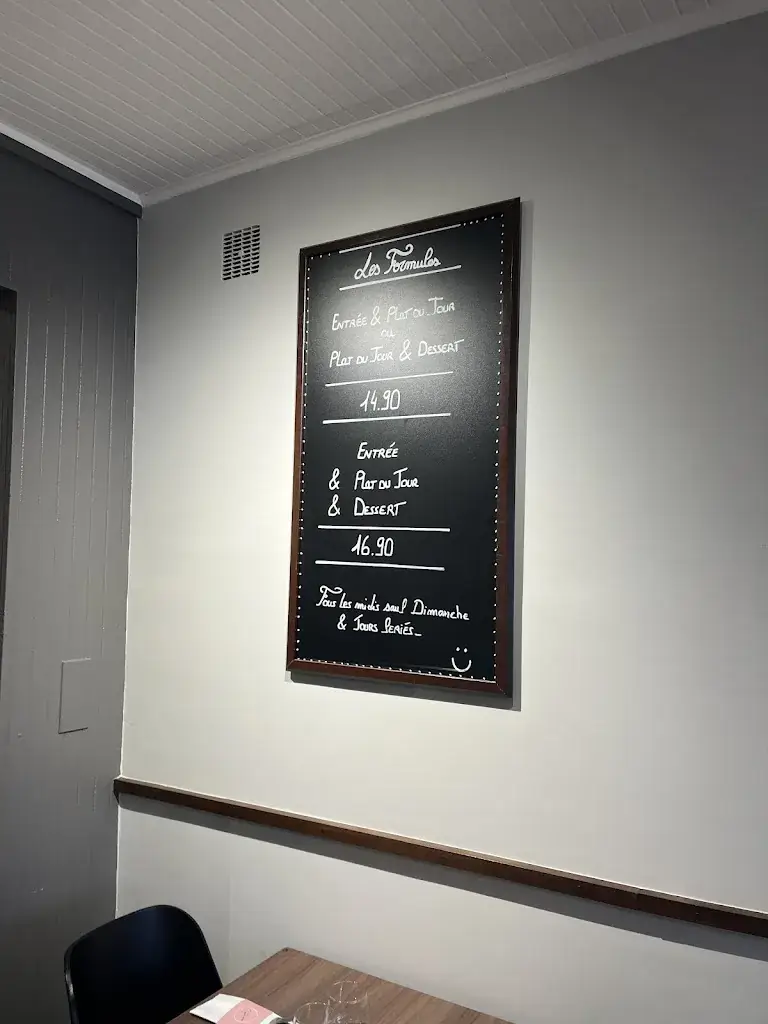 Les Formules
ENTRÉE & PLAT DU JOUR
OU
PLAT DU JOUR & DESSERT
14.90
ENTRÉE
& PLAT DU JOUR
& DESSERT
16.90
Tous les midis sauf Dimanche
& JOURS FERIÉS_